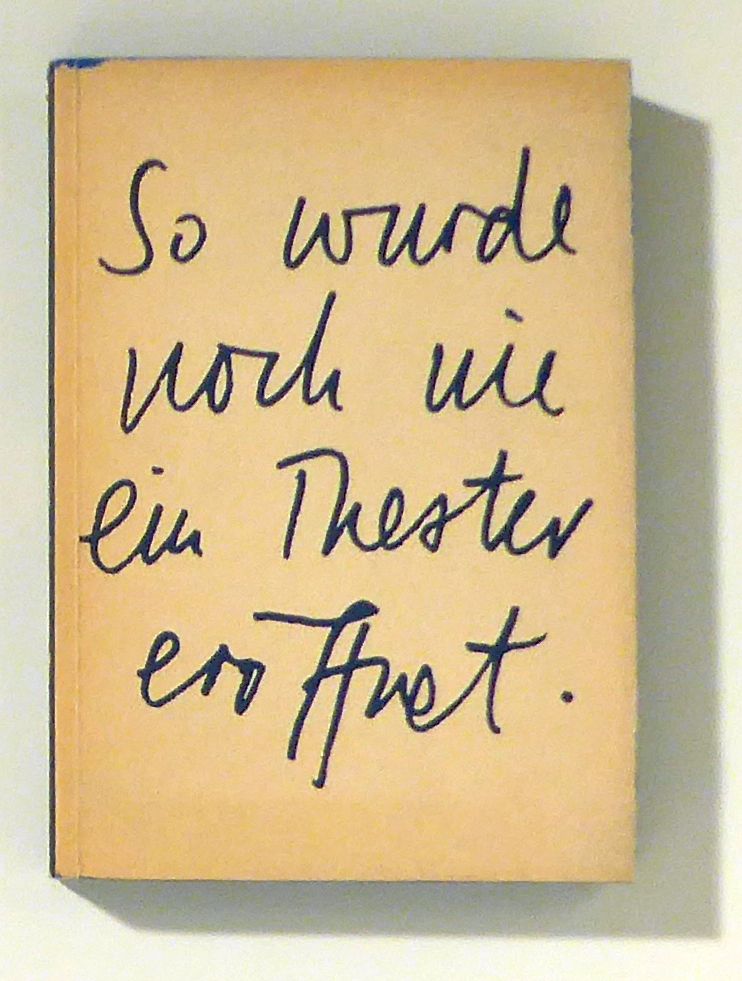 So wurde
noch nie
ein Theater
eröffnet.